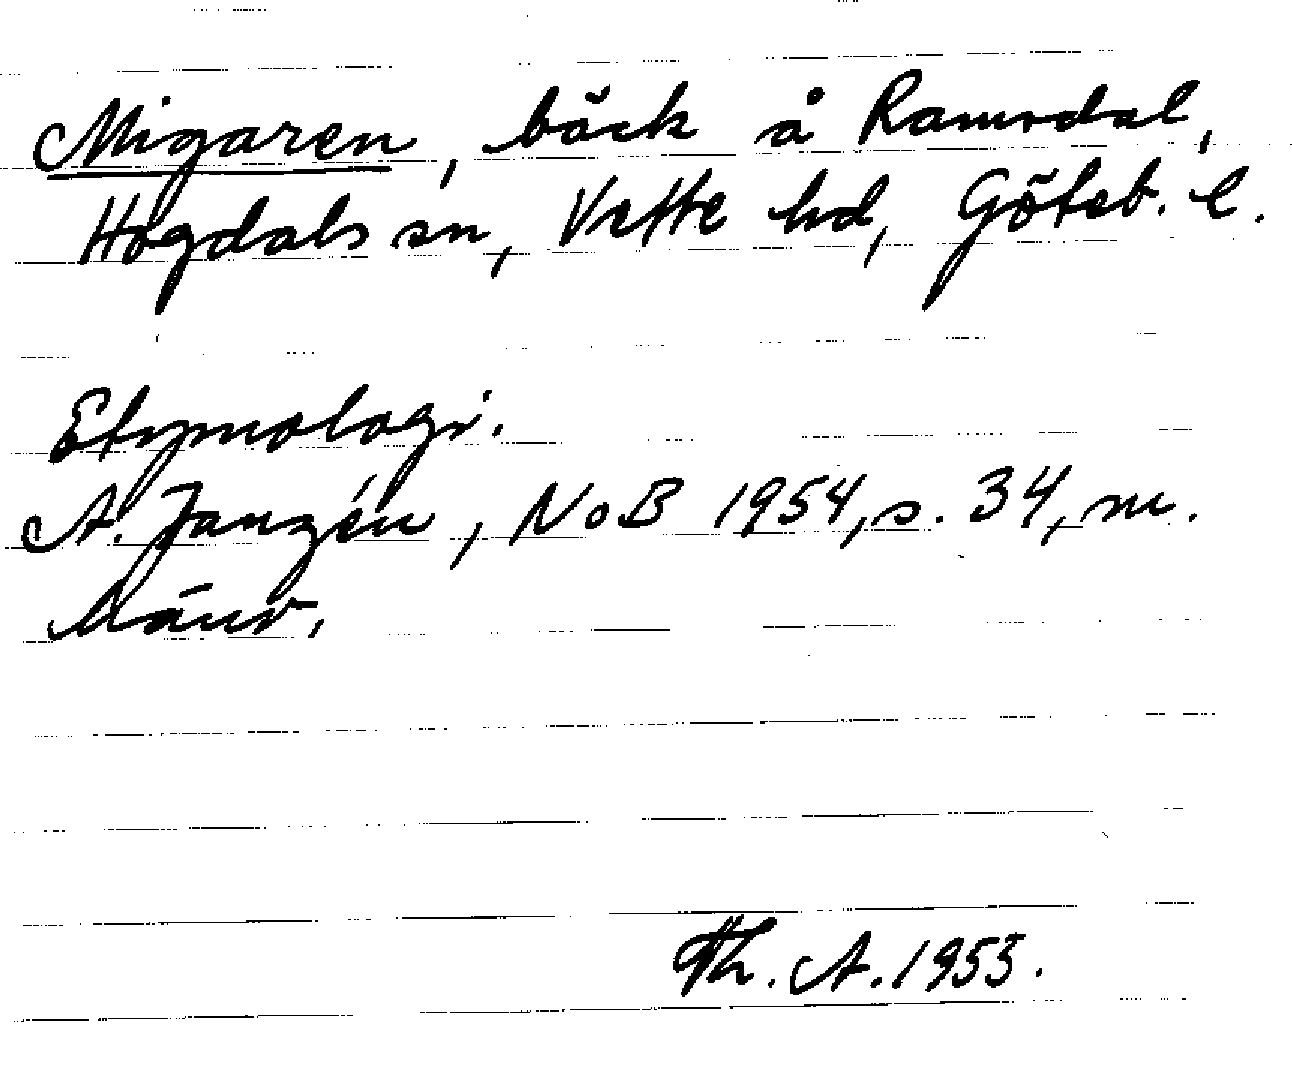 Migaren, bäck å Ramsdal,
Hogdals sn, Vette hd, Göteb. l.
Etymologi.
A. Janzén, NoB 1954, s. 34, m.
hänv.
Th. A. 1955.